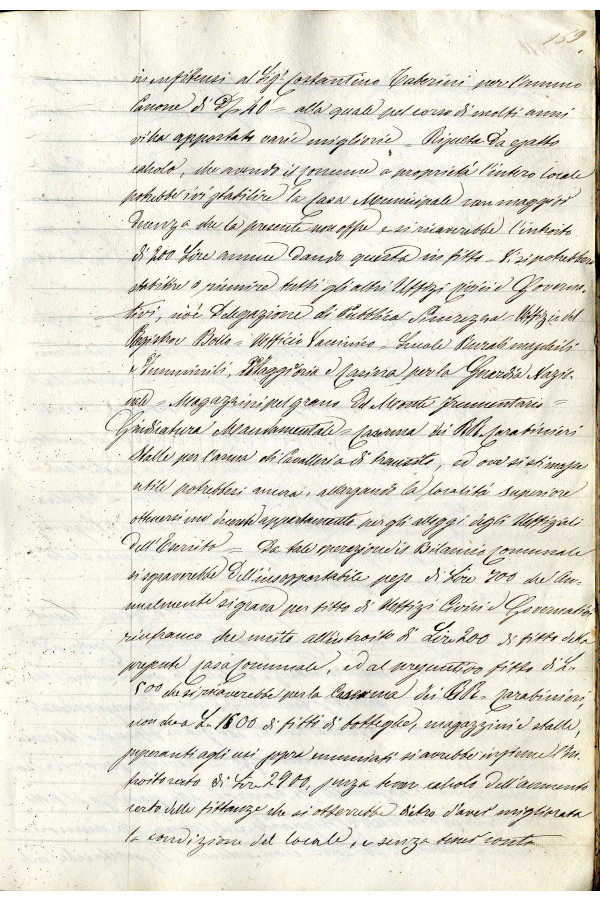 159
in enfiteusi al Sig.r Costantino Taberini per l'annuo
Canone di D/ 40 = alla quale pel corso di molti anni
vi ha apportato varie migliorie = Risulta da esatto
calcolo, che avendo il Comune a proprietà l'intero locale
potrebbe ivi stabilire la Casa Municipale con maggior
decenza che la presente non offre e si ricaverebbe l'introito
di 200 Lire annue dando questa in fitto = Vi si potrebbero
stabilire o riunire tutti gli altri Uffizi civici e Governa-
tivi, cioè Delegazione di Pubblica Sicurezza = Uffizio del
Registro e Bollo = Ufficio = Scuole Rurali maschili
e Femminili, Maggioria e Casina per la Guardia Nazio-
nale = Magazzini pel grano del Monte frumentario =
Giudicatura Mandamentale = Caserma dei RR. Carabinieri
Stalle per l'arma di Cavalleria di transito, ed ove si stimasse
utile potrebbesi ancora, allargando la località superiore
ottenersi un decente appartamento per gli alloggi degli Uffiziali
dell'Esercito = Da tale operazione il Bilancio Comunale
si sgraverebbe dell'insopportabile peso di Lire 700 che An-
nualmente si grava per fitto di Uffizi Civici e Governativi
rinfranco che unito all'introito di Lire 200 di fitto della
presente casa Comunale, ed al presuntivo fitto di L.
500 che si ricaverebbe per la Caserma dei RR. Carabinieri,
non che a L. 1500 di fitti di botteghe, magazzini e stalle,
superanti agli usi sopra enunciati si avrebbe insieme l'in-
troito certo di Lire 2900, senza tener calcolo dell'aumento
certo delle fittanze che si otterrebbe dietro d'aver migliorata
la condizione del locale, e senza tener conto